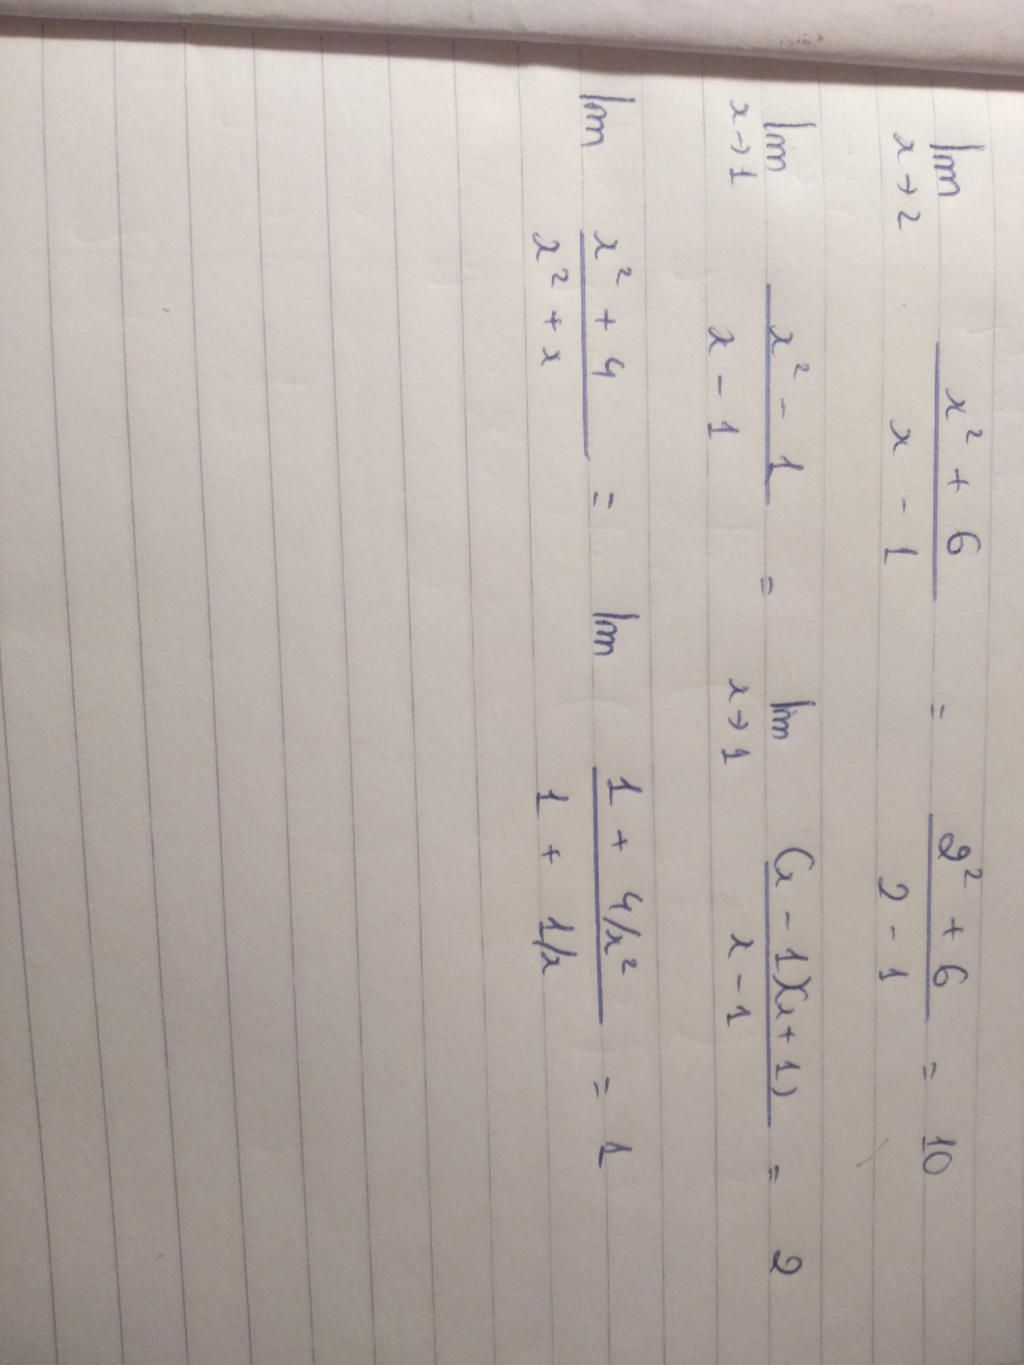 lim x→2 (x² + 6)/(x - 1) = (2² + 6)/(2 - 1) = 10
lim x→1 (x² - 1)/(x - 1) = lim x→1 (x - 1)(x + 1)/(x - 1) = 2
lim (x² + 4)/(x² + x) = lim (1 + 4/x²)/(1 + 1/x) = 1